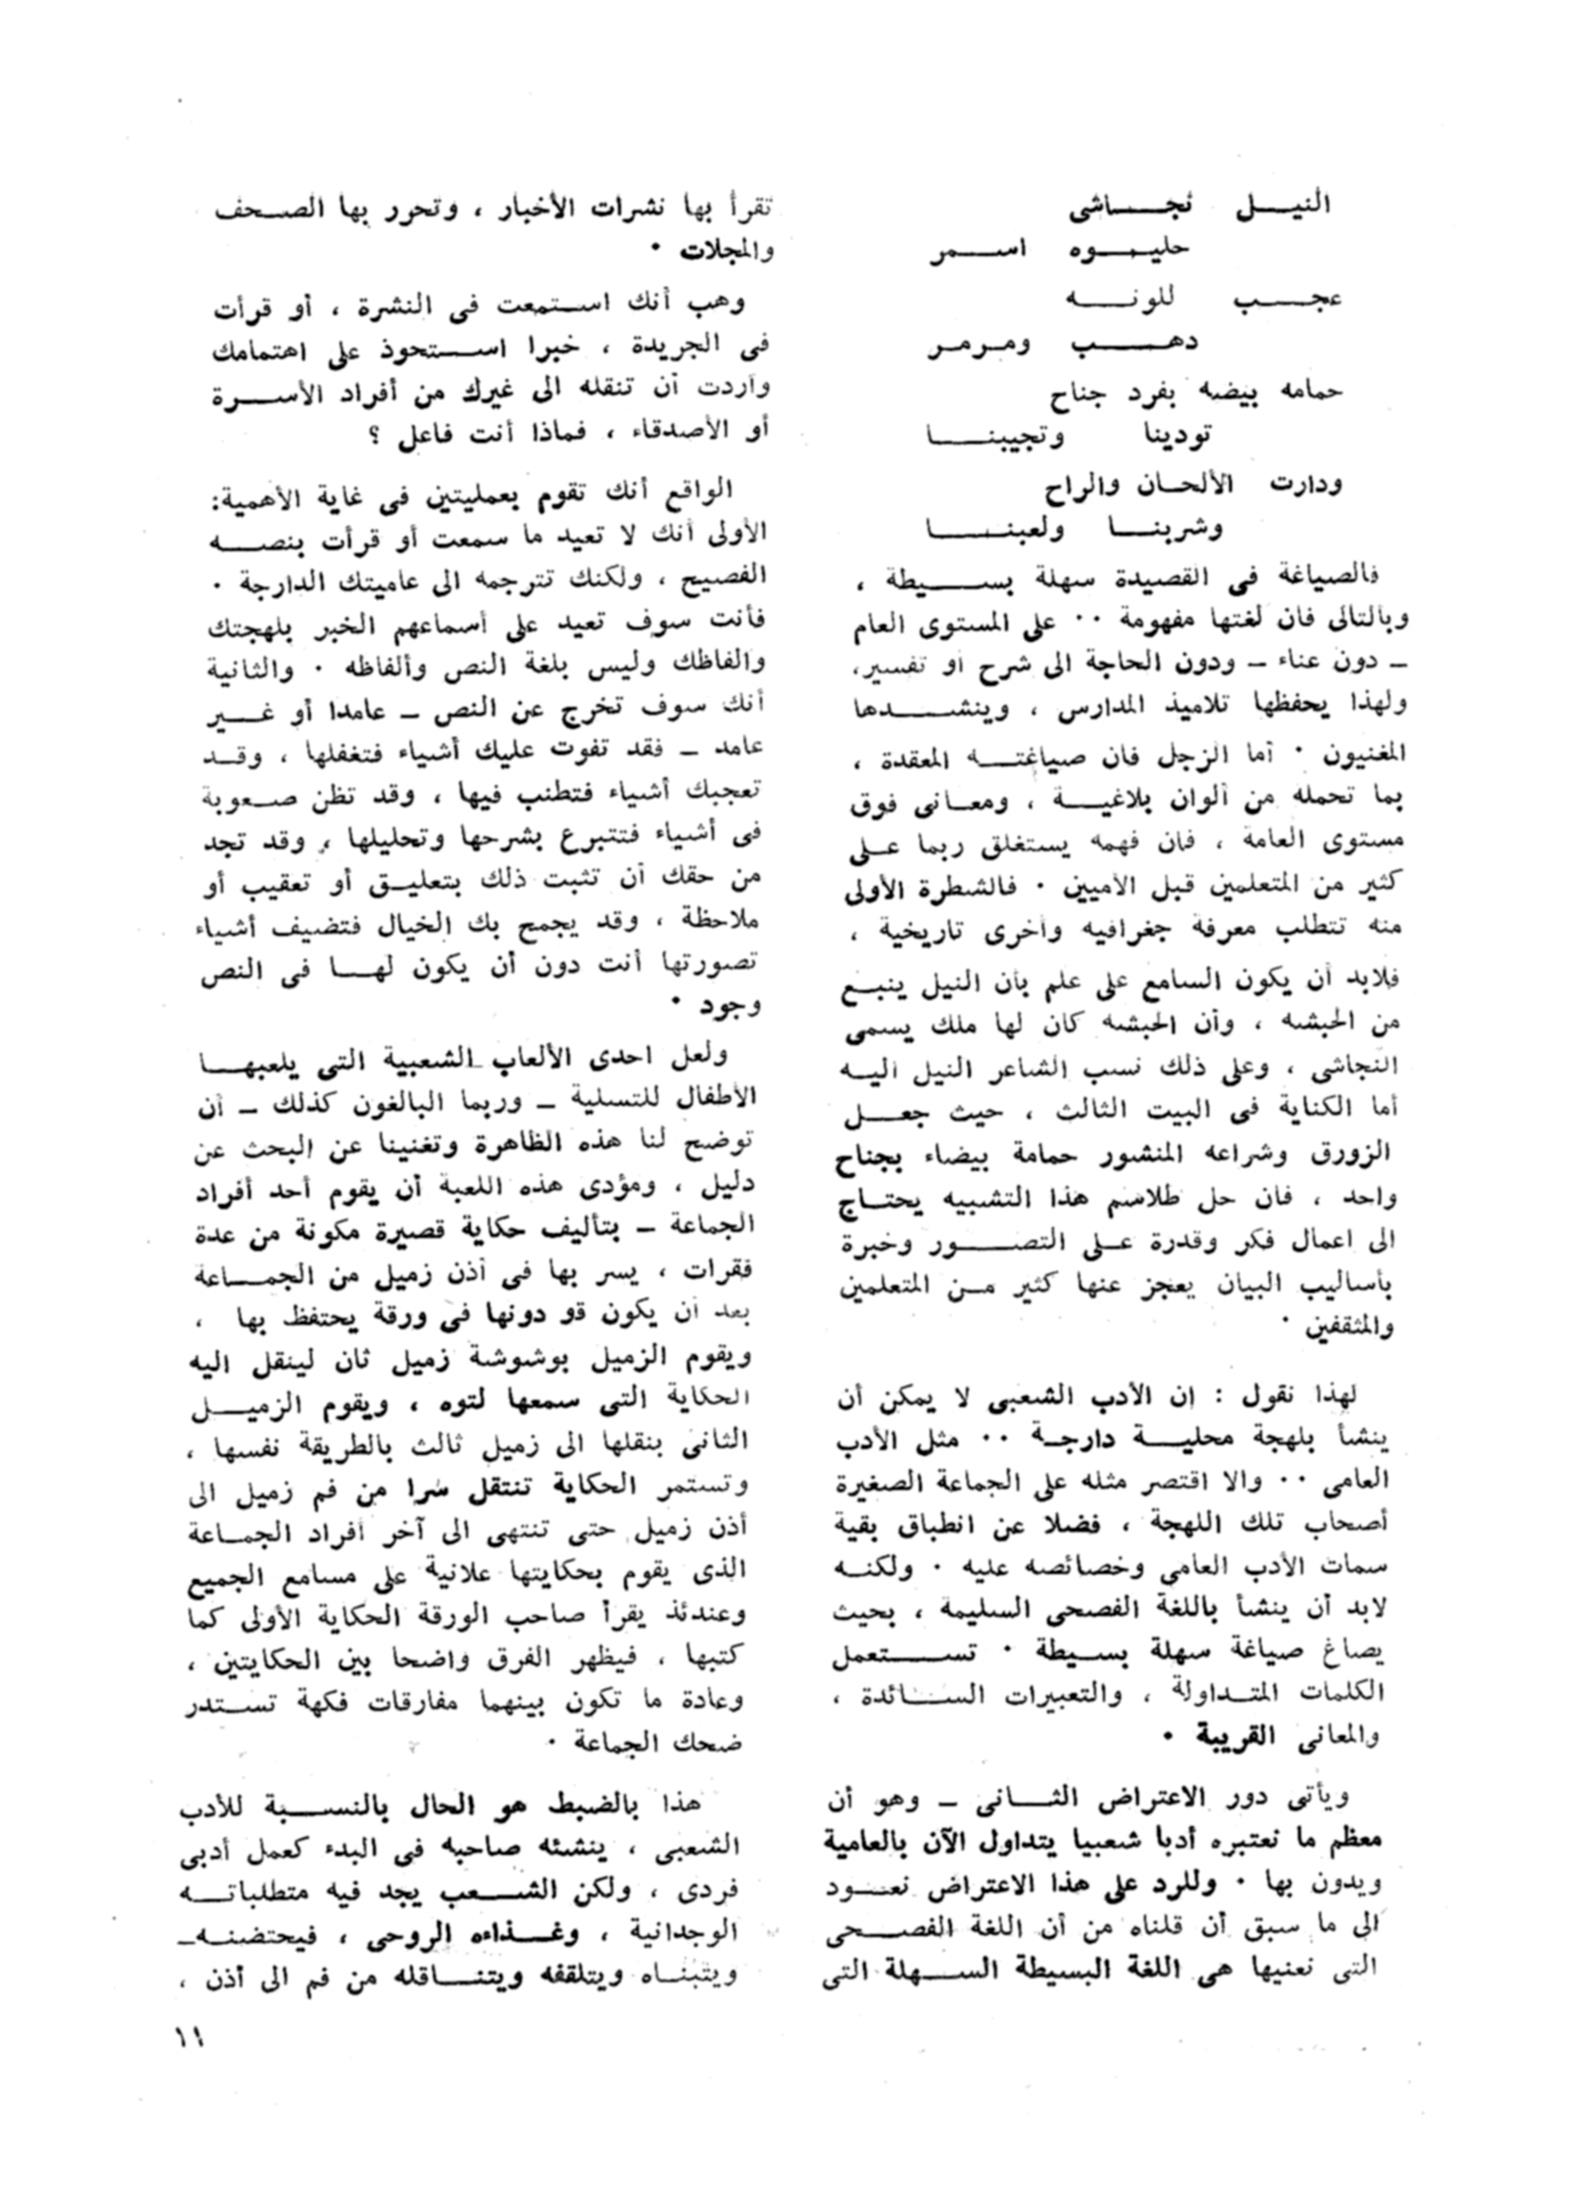 النيل نجاشى
حليوه اسمر
عجب للونه
دهب ومرمر
حمامه بيضه بفرد جناح
تودينا وتجيبنا
ودارت الألحان والراح
وشربنا ولعبنا
فالصياغة فى القصيدة سهلة بسيطة ،
وبالتالى فان لغتها مفهومة ٠٠ على المستوى العام
ـ دون عناء ـ ودون الحاجة الى شرح أو تفسير،
ولهذا يحفظها تلاميذ المدارس ، وينشدها
المغنيون ٠ أما الزجل فان صياغته المعقدة ،
بما تحمله من ألوان بلاغية ، ومعانى فوق
مستوى العامة ، فان فهمه يستغلق ربما على
كثير من المتعلمين قبل الأميين ٠ فالشطرة الأولى
منه تتطلب معرفة جغرافيه وأخرى تاريخية ،
فلابد أن يكون السامع على علم بأن النيل ينبع
من الحبشه ، وأن الحبشه كان لها ملك يسمى
النجاشى ، وعلى ذلك نسب الشاعر النيل اليه
أما الكناية فى البيت الثالث ، حيث جعل
الزورق وشراعه المنشور حمامة بيضاء بجناح
واحد ، فان حل طلاسم هذا التشبيه يحتاج
الى اعمال فكر وقدرة على التصور وخبرة
بأساليب البيان يعجز عنها كثير من المتعلمين
والمثقفين ٠
لهذا نقول : ان الأدب الشعبى لا يمكن أن
ينشأ بلهجة محلية دارجة ٠٠ مثل الأدب
العامى ٠٠ والا اقتصر مثله على الجماعة الصغيرة
أصحاب تلك اللهجة ، فضلا عن انطباق بقية
سمات الأدب العامى وخصائصه عليه ٠ ولكنه
لابد أن ينشأ باللغة الفصحى السليمة ، بحيث
يصاغ صياغة سهلة بسيطة ٠ تستعمل
الكلمات المتداولة ، والتعبيرات السائدة ،
والمعانى القريبة ٠
ويأتى دور الاعتراض الثانى ـ وهو أن
معظم ما نعتبره أدبا شعبيا يتداول الآن بالعامية
ويدون بها ٠ وللرد على هذا الاعتراض نعود
الى ما سبق أن قلناه من أن اللغة الفصحى
التى نعنيها هى اللغة البسيطة السهلة التى
تقرأ بها نشرات الأخبار ، وتحرر بها الصحف
والمجلات ٠
وهب أنك استمعت فى النشرة ، أو قرأت
فى الجريدة ، خبرا استحوذ على اهتمامك
وأردت أن تنقله الى غيرك من أفراد الأسرة
أو الأصدقاء ، فماذا أنت فاعل ؟
الواقع أنك تقوم بعمليتين فى غاية الأهمية:
الأولى أنك لا تعيد ما سمعت أو قرأت بنصه
الفصيح ، ولكنك تترجمه الى عاميتك الدارجة ٠
فأنت سوف تعيد على أسماعهم الخبر بلهجتك
والفاظك وليس بلغة النص وألفاظه ٠ والثانية
أنك سوف تخرج عن النص ـ عامدا أو غير
عامد ـ فقد تفوت عليك أشياء فتغفلها ، وقد
تعجبك أشياء فتطنب فيها ، وقد تظن صعوبة
فى أشياء فتتبرع بشرحها وتحليلها ، وقد تجد
من حقك أن تثبت ذلك بتعليق أو تعقيب أو
ملاحظة ، وقد يجمح بك الخيال فتضيف أشياء
تصورتها أنت دون أن يكون لها فى النص
وجود ٠
ولعل احدى الألعاب الشعبية التى يلعبها
الأطفال للتسلية ـ وربما البالغون كذلك ـ أن
توضح لنا هذه الظاهرة وتغنينا عن البحث عن
دليل ، ومؤدى هذه اللعبة أن يقوم أحد أفراد
الجماعة ـ بتأليف حكاية قصيرة مكونة من عدة
فقرات ، يسر بها فى أذن زميل من الجماعة
بعد أن يكون قو دونها فى ورقة يحتفظ بها ،
ويقوم الزميل بوشوشة زميل ثان لينقل اليه
الحكاية التى سمعها لتوه ، ويقوم الزميل
الثانى بنقلها الى زميل ثالث بالطريقة نفسها ،
وتستمر الحكاية تنتقل سرا من فم زميل الى
أذن زميل حتى تنتهى الى آخر أفراد الجماعة
الذى يقوم بحكايتها علانية على مسامع الجميع
وعندئذ يقرأ صاحب الورقة الحكاية الأولى كما
كتبها ، فيظهر الفرق واضحا بين الحكايتين ،
وعادة ما تكون بينهما مفارقات فكهة تستدر
ضحك الجماعة ٠
هذا بالضبط هو الحال بالنسبة للأدب
الشعبى ، ينشئه صاحبه فى البدء كعمل أدبى
فردى ، ولكن الشعب يجد فيه متطلباته
الوجدانية ، وغذاءه الروحى ، فيحتضنه
ويتبناه ويتلقفه ويتناقله من فم الى أذن ،
١١